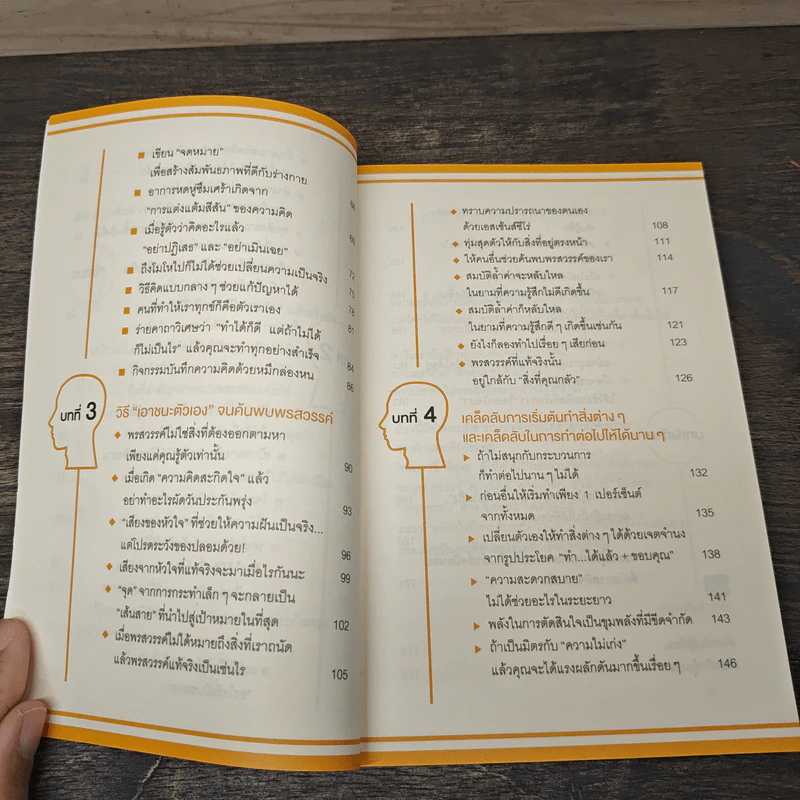 ■ เขียน “จดหมาย”
เพื่อสร้างสัมพันธภาพที่ดีกับร่างกาย
■ อาการหดหู่ซึมเศร้าเกิดจาก
“การแต่งแต้มสีสัน” ของความคิด 66
■ เมื่อรู้ตัวว่าคิดอะไรแล้ว
“อย่าปฏิเสธ” และ “อย่าเมินเฉย” 69
■ ถึงโมโหไปก็ไม่ได้ช่วยเปลี่ยนความเป็นจริง 72
■ วิธีคิดแบบกลาง ๆ ช่วยแก้ปัญหาได้ 75
■ คนที่ทำให้เราทุกข์ก็คือตัวเราเอง 78
■ ร่ายคาถาวิเศษว่า “ทำได้ก็ดี แต่ถ้าไม่ได้ 81
ก็ไม่เป็นไร” แล้วคุณจะทำทุกอย่างสำเร็จ
■ กิจกรรมบันทึกความคิดด้วยหมึกล่องหน 84
86
บทที่ 3 วิธี “เอาชนะตัวเอง” จนค้นพบพรสวรรค์
◆ พรสวรรค์ไม่ใช่สิ่งที่ต้องออกตามหา
เพียงแค่คุณรู้ตัวเท่านั้น 90
◆ เมื่อเกิด “ความคิดสะกิดใจ” แล้ว
อย่าทำอะไรผัดวันประกันพรุ่ง 93
◆ “เสียงของหัวใจ” ที่ช่วยให้ความฝันเป็นจริง...
แต่โปรดระวังของปลอมด้วย! 96
◆ เสียงจากหัวใจที่แท้จริงจะมาเมื่อไรกันนะ 99
◆ “จุด” จากการกระทำเล็ก ๆ จะกลายเป็น
“เส้นสาย” ที่นำไปสู่เป้าหมายในที่สุด 102
◆ เมื่อพรสวรรค์ไม่ได้หมายถึงสิ่งที่เราถนัด
แล้วพรสวรรค์แท้จริงเป็นเช่นไร 105
◆ ทราบความปรารถนาของตนเอง
ด้วยเอสเซ้นส์ซีโร่ 108
◆ ทุ่มสุดตัวให้กับสิ่งที่อยู่ตรงหน้า 111
◆ ให้คนอื่นช่วยค้นพบพรสวรรค์ของเรา 114
◆ สมบัติล้ำค่าจะหลับใหล
ในยามที่ความรู้สึกไม่ดีเกิดขึ้น 117
◆ สมบัติล้ำค่าก็หลับใหล
ในยามที่ความรู้สึกดี ๆ เกิดขึ้นเช่นกัน 121
◆ ยังไงก็ลองทำไปเรื่อย ๆ เสียก่อน 123
◆ พรสวรรค์ที่แท้จริงนั้น
อยู่ใกล้กับ “สิ่งที่คุณกลัว” 126
บทที่ 4 เคล็ดลับการเริ่มต้นทำสิ่งต่าง ๆ
และเคล็ดลับในการทำต่อไปให้ได้นาน ๆ
▶ ถ้าไม่สนุกกับกระบวนการ
ก็ทำต่อไปนาน ๆ ไม่ได้ 132
▶ ก่อนอื่นให้เริ่มทำเพียง 1 เปอร์เซ็นต์
จากทั้งหมด 135
▶ เปลี่ยนตัวเองให้ทำสิ่งต่าง ๆ ได้ด้วยเจตจำนง
จากรูปประโยค “ทำ...ได้แล้ว + ขอบคุณ” 138
▶ “ความสะดวกสบาย”
ไม่ได้ช่วยอะไรในระยะยาว 141
▶ พลังในการตัดสินใจเป็นขุมพลังที่มีขีดจำกัด 143
▶ ถ้าเป็นมิตรกับ “ความไม่เก่ง”
แล้วคุณจะได้แรงผลักดันมากขึ้นเรื่อย ๆ 146